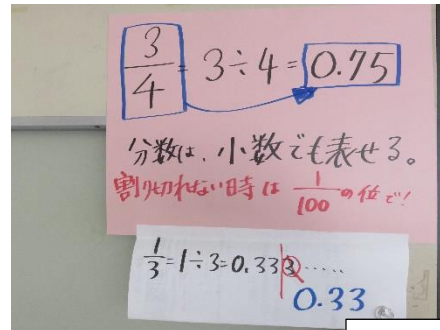 3/4 = 3÷4 = 0.75
分数は、小数でも表せる。
割り切れない時は 1/100 の位で!
1/3 = 1÷3 = 0.333.....
0.33